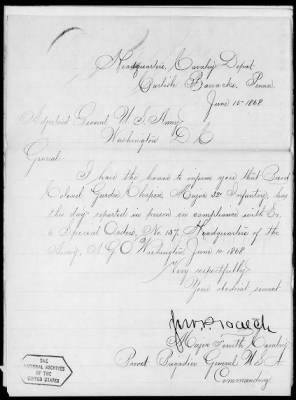 Headquarters, Cavalry Depot
Carlisle Barracks, Penna
June 15th 1868.
Adjutant General U.S. Army
Washington D.C.
General:
I have the honor to inform you that Brevet
Colonel Gordon Chapin, Major 32d Infantry, has
this day reported in person in compliance with Par.
6 Special Orders, No 137, Headquarters of the
Army, A.G.O. Washington June 10 1868.
Very respectfully
Your obedient servant
Major Fourth Cavalry
Brevet Brigadier General U.S.A.
Commanding
THE
NATIONAL ARCHIVES
OF THE
UNITED STATES